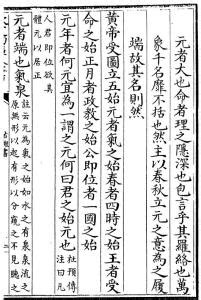 元者大也命者理之隱深也包言乎其羅絡也萬
象千名靡不括也然主以春秋立元之意為之履
端故其名則然
黃帝受圖立五始元者氣之始春者四時之始王者受
命之始正月者政教之始公即位者一國之始
元年者何元宜為一謂之元何曰君之始元也杜預傳註曰凡
人君即位欲其體元以居正
元者端也氣泉註云元為氣之始如水之有泉泉流之原無形以起有形以分窺之不見聽之